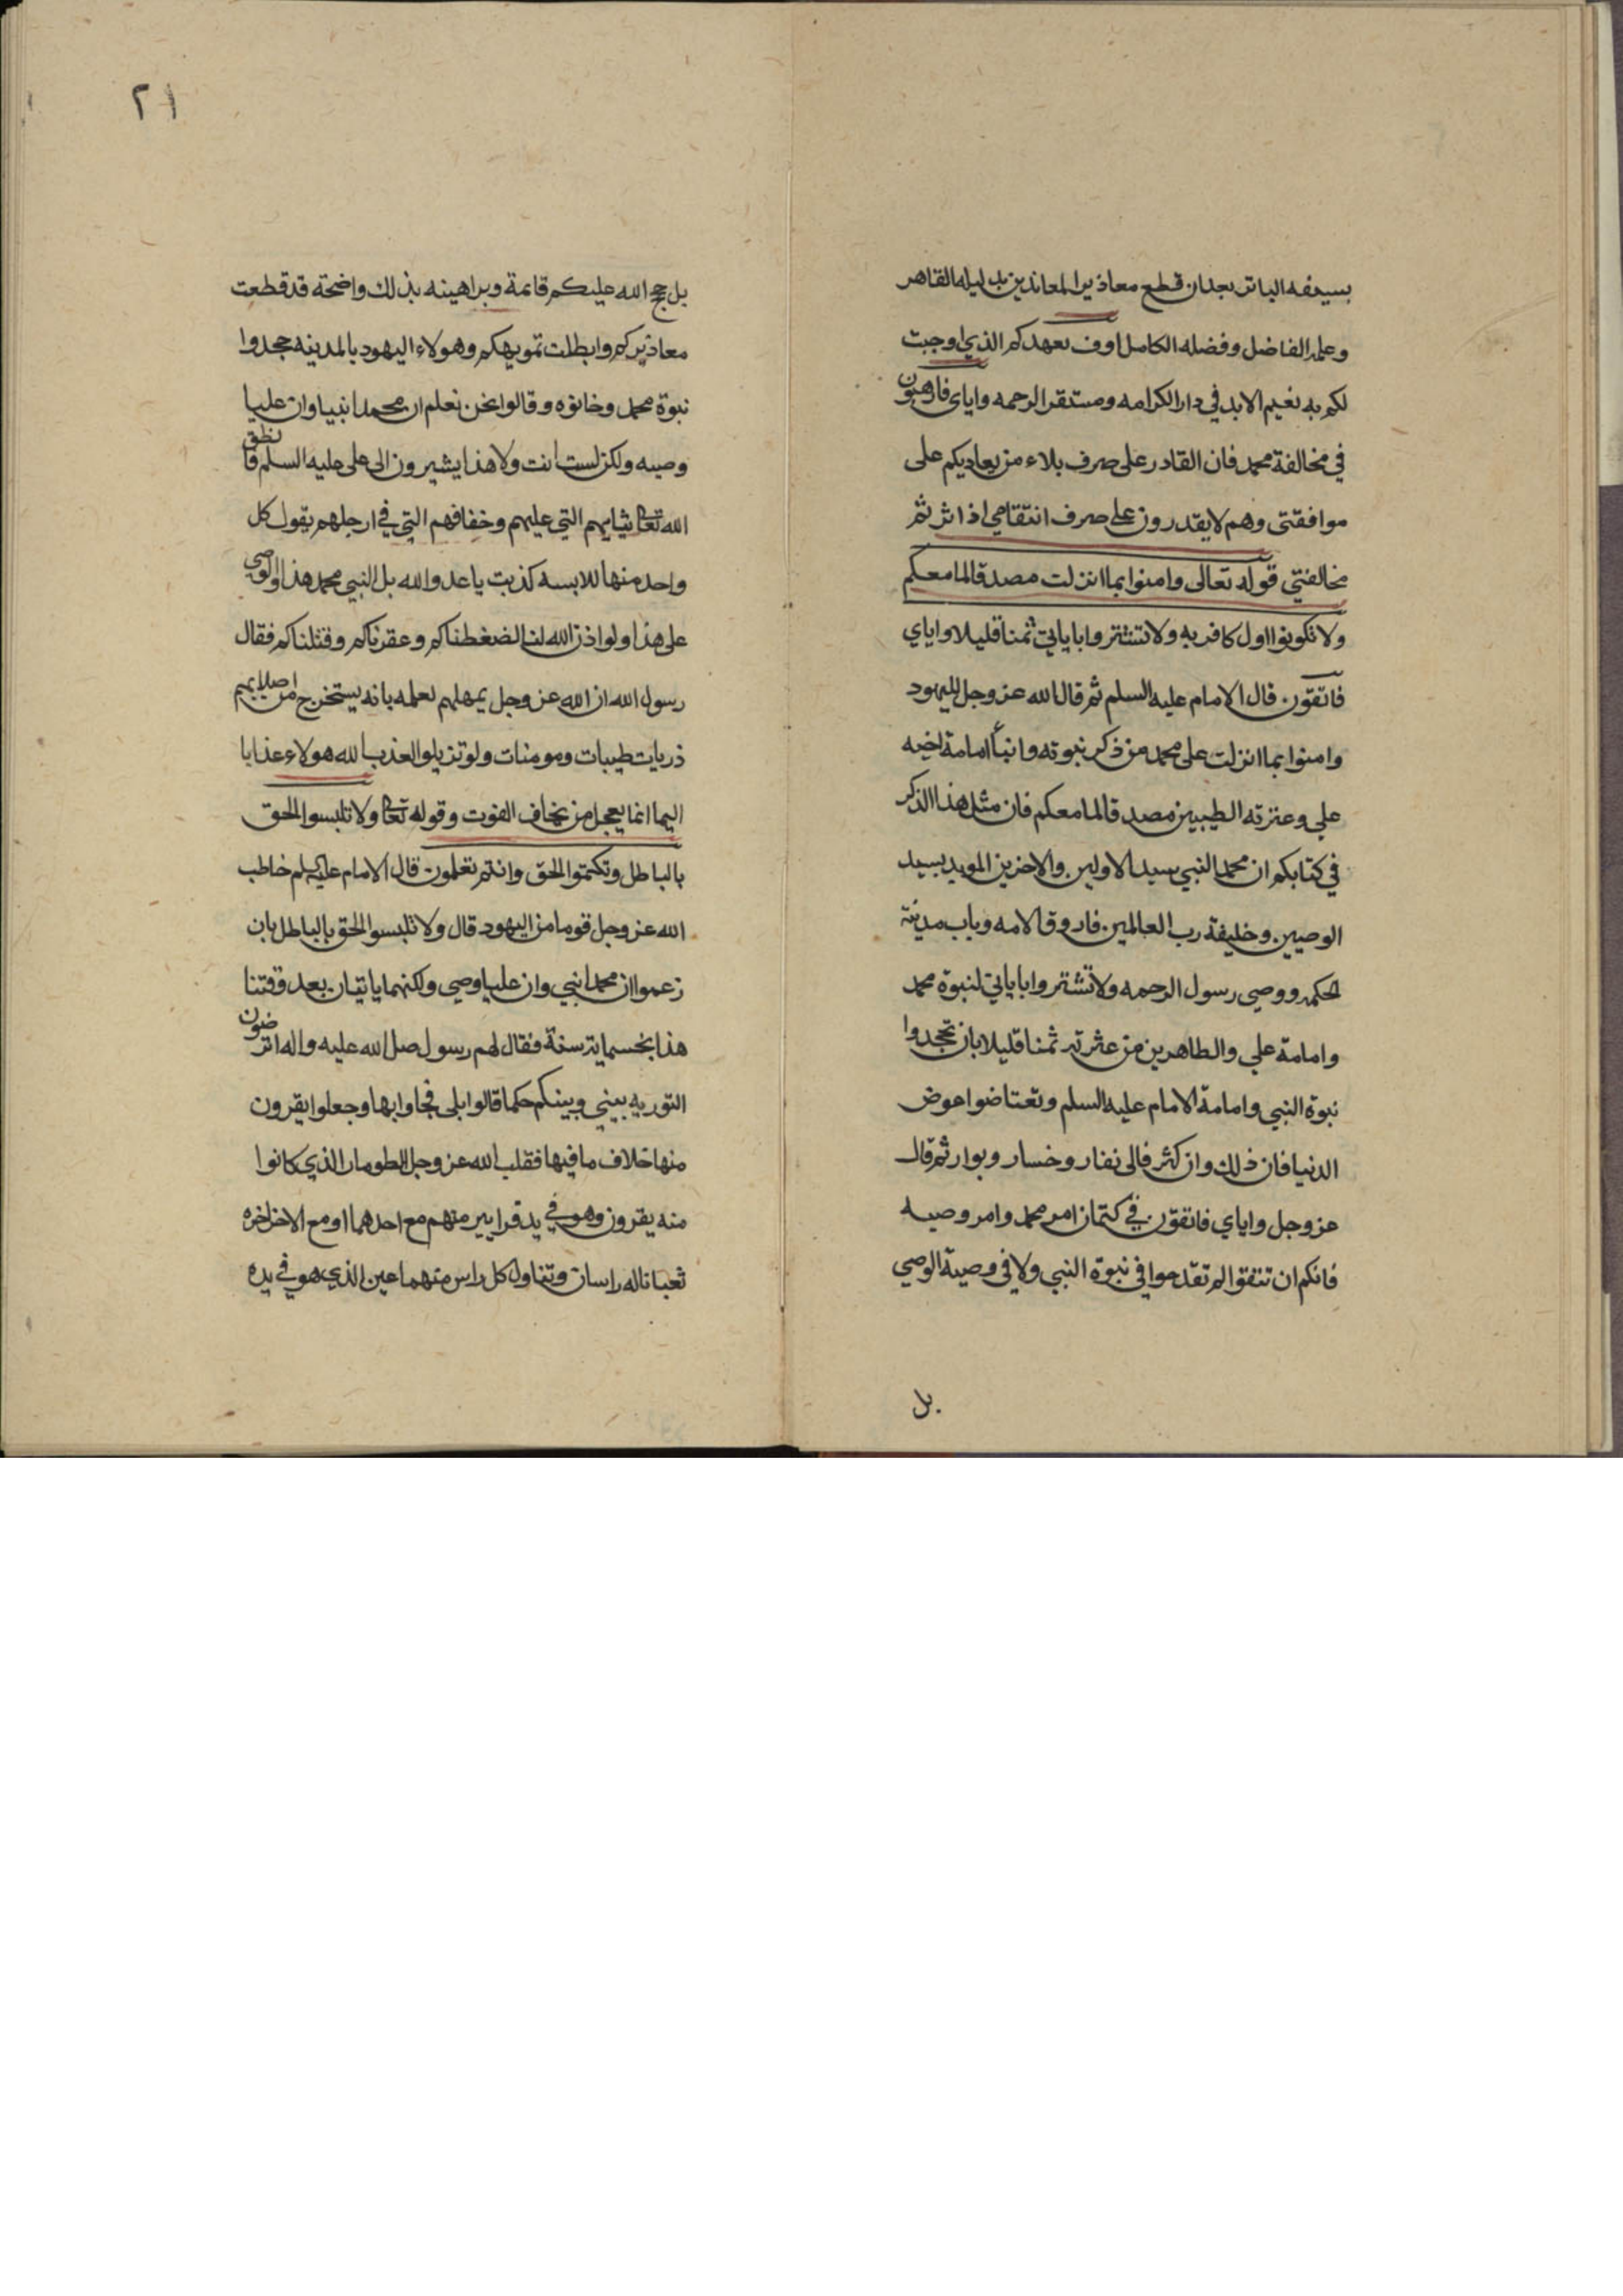 بسيفه الباتر بعد ان قطع معاذير المعاندين بدليله القاهر
وعلمه الفاضل وفضله الكامل اوف بعهدكم الذي اوجبت
لكم به نعيم الابد في دار الكرامه ومستقر الرحمه واياى فارهبون
في مخالفة محمد فان القادر على صرف بلاء من يعاديكم على
موافقتى وهم لا يقدرون على صرف انتقامي اذا اثرتم
مخالفتي قوله تعالى وامنوا بما انزلت مصدقا لما معكم
ولا تكونوا اول كافر به ولا تشتروا باياتي ثمنا قليلا واياي
فاتقون قال الامام عليه السلم ثم قال الله عز وجل لليهود
وامنوا بما انزلت على محمد من ذكر نبوته وانبأ امامة اخيه
علي وعترته الطيبين مصدقا لما معكم فان مثل هذا الذكر
في كتابكم ان محمدا النبي سيد الاولين والاخرين المويد بسيد
الوصيين وخليفة رب العالمين فاروق الامه وباب مدينة
الحكمه ووصي رسول الرحمه ولا تشتروا باياتي لنبوة محمد
وامامة علي والطاهرين من عترته ثمنا قليلا بان تجحدوا
نبوة النبي وامامة الامام عليه السلم وتعتاضوا عوض
الدنيا فان ذلك وان كثر فالى نفار وخسار وبوار ثم قال
عز وجل واياي فاتقون في كتمان امر محمد وامر وصيه
فانكم ان تتقوا لم تقدحوا في نبوة النبي ولا في وصية الوصي
بل
٢١
بل حجج الله عليكم قائمة وبراهينه بذلك واضحة قد قطعت
معاذيركم وابطلت تمويهكم وهولاء اليهود بالمدينه جحدوا
نبوة محمد وخانوه وقالوا نحن نعلم ان محمدا نبيا وان عليا
وصيه ولكن لست انت ولا هذا يشيرون الى علي عليه السلم فانطق
الله تعالى ثيابهم التي عليهم وخفافهم التي في ارجلهم يقول كل
واحد منها للابسه كذبت يا عدو الله بل النبي محمد هذا والوصي
علي هذا ولو اذن الله لنا لضغطناكم وعقرناكم وقتلناكم فقال
رسول الله ان الله عز وجل يمهلهم لعلمه بانه يستخرج من اصلابهم
ذريات طيبات ومومنات ولو تزيلوا لعذب الله هولاء عذابا
اليما انما يعجل من يخاف الفوت وقوله تعالى ولا تلبسوا الحق
بالباطل وتكتموا الحق وانتم تعلمون قال الامام عليه السلم خاطب
الله عز وجل قوما من اليهود قال ولا تلبسوا الحق بالباطل بان
زعموا ان محمدا نبي وان عليا وصي ولكنهما ياتيان بعد وقتنا
هذا بخسماية سنة فقال لهم رسول صلى الله عليه واله اترضون
التوريه بيني وبينكم حكما قالوا بلى فجاوا بها وجعلوا يقرون
منها خلاف ما فيها فقلب الله عز وجل الطومار الذي كانوا
منه يقرون وهو في يد قرايين منهم مع احدهما اوله ومع الاخر اخره
ثعبانا له راسان وتناول كل راس منهما عين الذي هو في يده